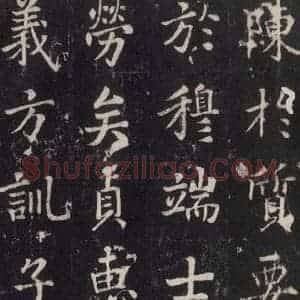 陳於質要
於穆端士
勞矣貞惠
義方訓子
Shufaziliao.COM